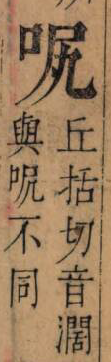 丘括切音濶
與呢不同